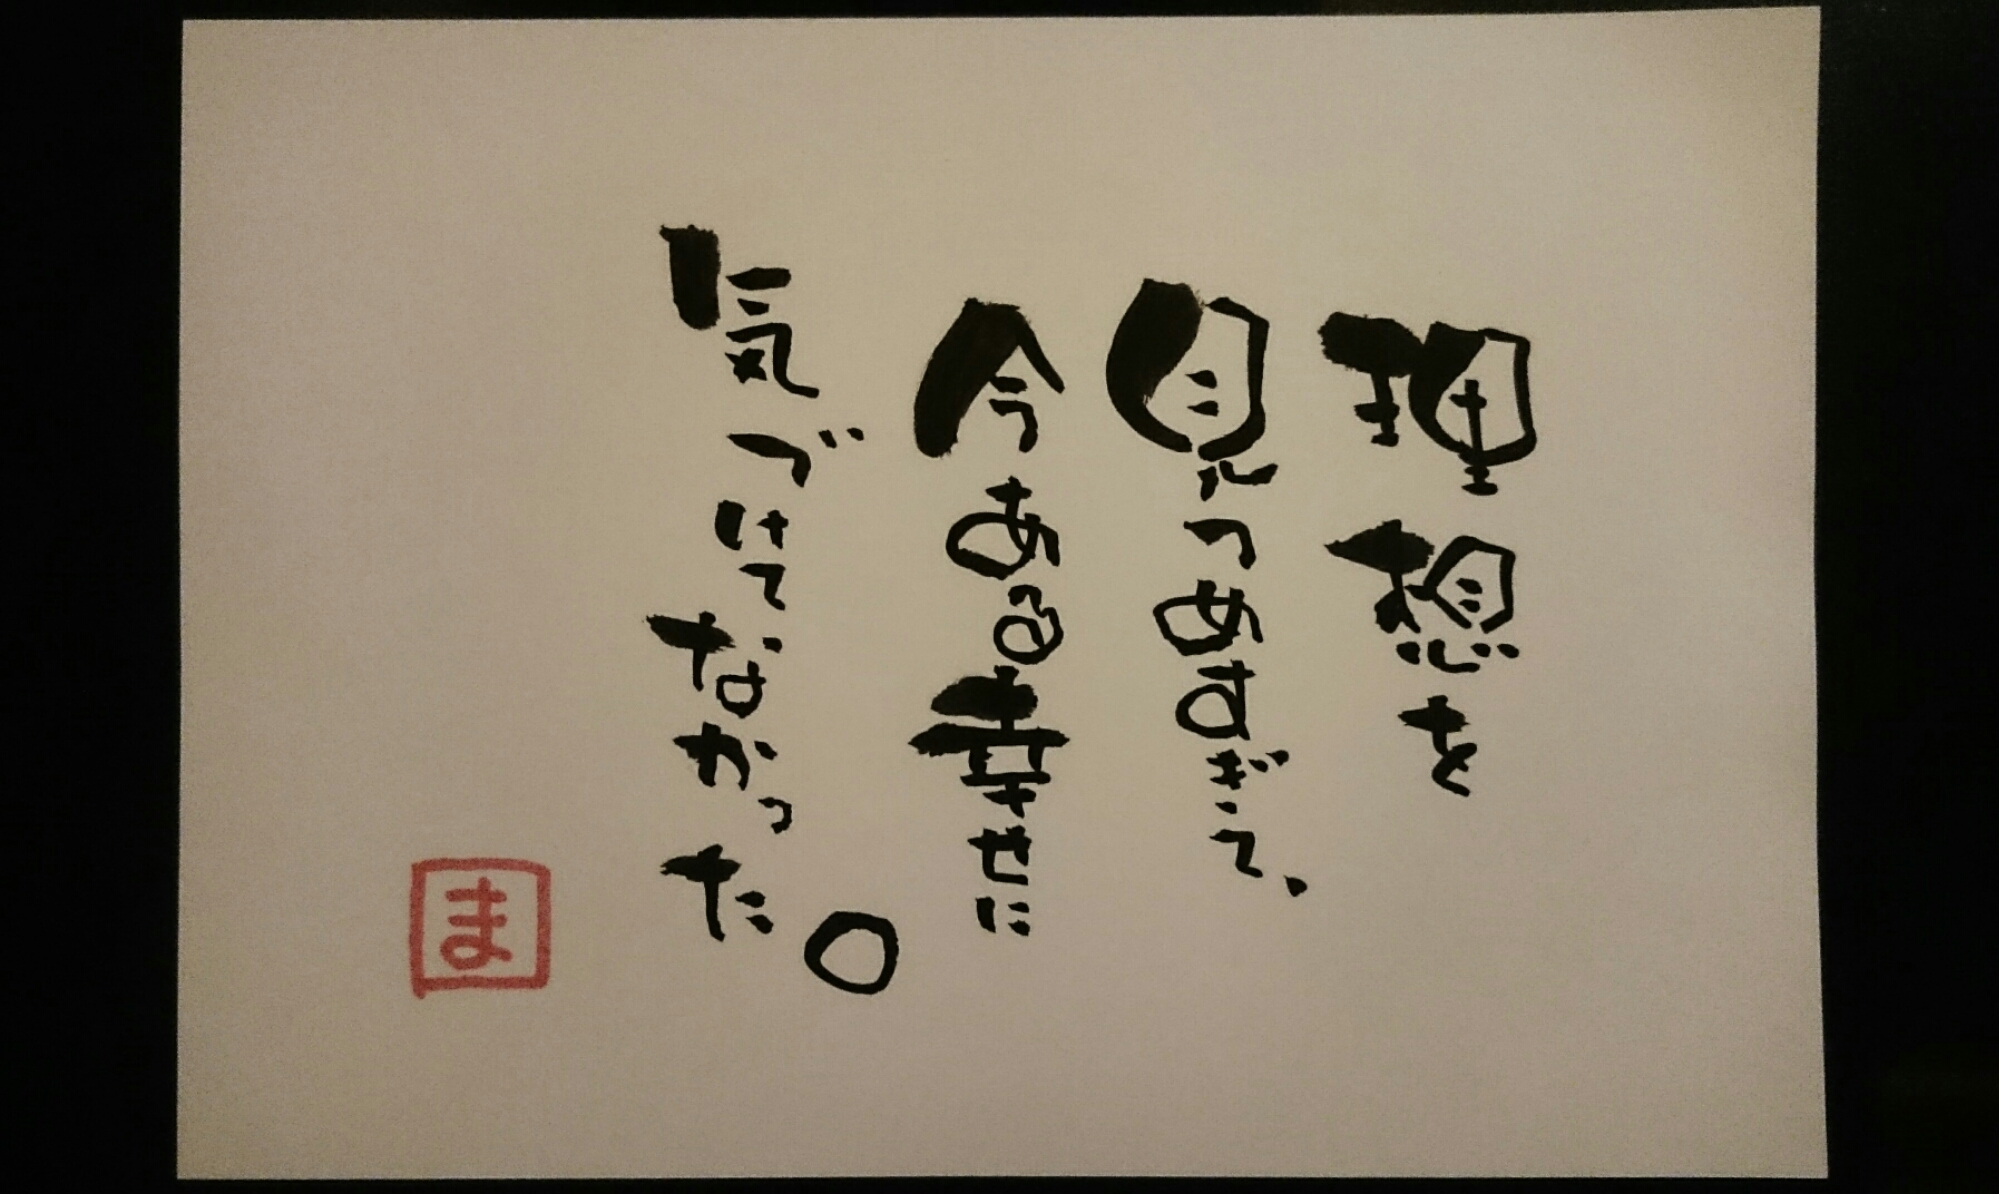 理想を
見つめすぎて、
今ある幸せに
気づけてなかった。
ま